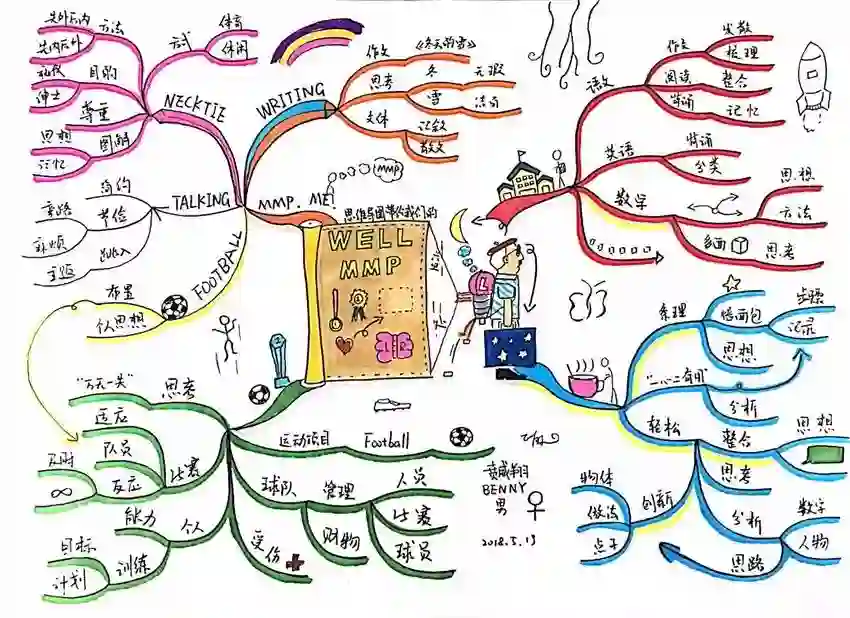 先外后内
先内后外
方法
方式
体育
休闲
目的
绅士
尊重
思想
记忆
图解
NECKTIE
WRITING
作文
《冬天的雪》
思考
冬
无瑕
雪
洁白
文体
记叙
散文
MMP. ME.
MMP
TALKING
简约
节俭
麻烦
主题
FOOTBALL
布置
个人思想
思维导图带给我们的
WELL
MMP
语文
作文
发散
梳理
阅读
整合
背诵
记忆
英语
背诵
分类
数学
思想
方法
多面
思考
条理
悟面包
步骤
记录
思想
"一心二有用"
轻松
分析
整合
思想
思考
创新
物体
做法
点子
分析
数字
人物
思路
"万无一失"
思考
适应
队员
比赛
及时
∞
反应
个人
能力
训练
目标
计划
运动项目
Football
球队
管理
人员
比赛
球员
财物
受伤
BENNY
男
2018.5.13